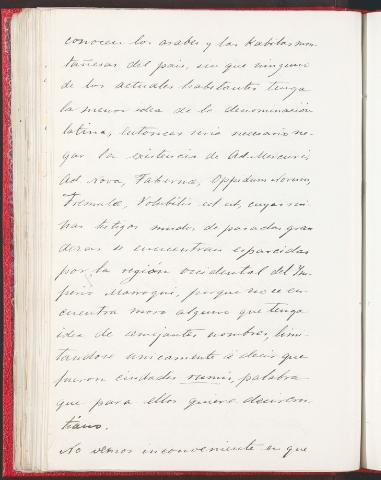 conocen los arabes y las Kabilas mon-
tañesas del pais, sin que ninguno
de los actuales habitantes tenga
la menor idea de la denominación
latina, entonces seria necesario ne-
gar la existencia de Ad Mercuri,
Ad Nova, Tabernæ, Oppidum Novum,
Tremulæ, Volubilis et et, cuyas rui-
nas testigos mudos de pasadas gran
dezas se encuentran esparcidas
por la región occidental del Im-
perio Marroqui, porque no se en-
cuentra moro alguno que tenga
idea de semejantes nombres, limi-
tandose unicamente á decir que
fueron ciudades rumis, palabra
que para ellos quiere decir cris-
tiano.
No vemos inconveniente en que